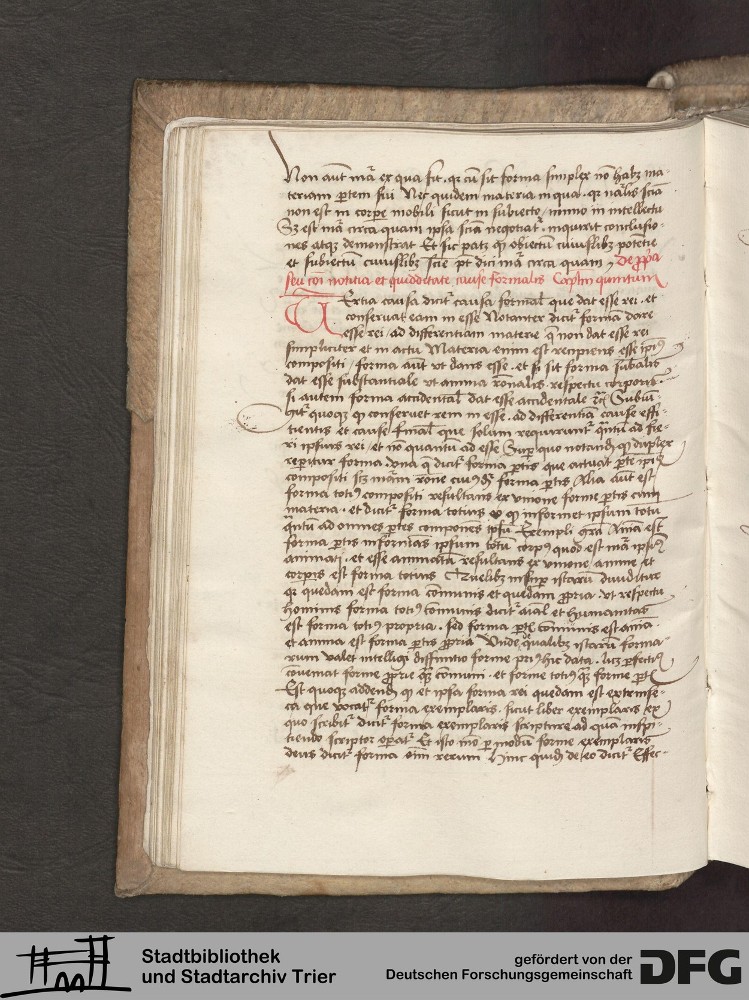 Non aut mā ex qua fit. qr cū sit forma simplex nō habz ma-
teriam ꝑtem sui Nec quidem materia in qua. qr nālis scīa
non est in corpore mobili sicut in subiecto, immo in intellectu
Sz est mā circa quam ipsa scīa negotiat. inquirit conclusio-
nes atqz demonstrat Et sic patz qͥ obiectū cuiuslibz potētie
et subiectum cuiuslibz scīe pt dici mā circa quam, De ꝓpͥa
seu cōi notitia et quidditate cause formalis Caplm quintum
Tertia causa dicit causa formalis que dat esse rei. et
conseruat eam in esse Notanter dicit formā dare
esse rei, ad differentiam materie q̄ non dat esse rei
simpliciter et in actu Materia enim est recipiens esse ipiꝰ
compositi, forma aut vt dans esse. et si sit forma subālis
dat esse substantiale vt anima rōnalis respectu corporis.
si autem forma accidental dat esse accidentale rc̄ Subiū-
git quoqz qͥ conseruet rem in esse. ad differentiā cause effi-
tientis et cause finalis que solum requirunt qntū ad fie-
ri ipsius rei, et nō quantū ad esse Super quo notandū qͥ duplex
reperitur forma. vna q̄ dicit forma ꝑtis que actuat ꝑtē ipiꝰ
compositi scz mām rōne cuiꝰ dr forma ꝑtis Alia aut est
forma totiꝰ compositi resultans ex vnione forme ꝑtis cum
materia. et dicit forma totius eo qͥ informet ipsum totū
qntū ad omnes ꝑtes componēs ipsū Exempli grā Aīma est
forma ꝑtis informās ipsum totū corpꝰ quod est mā ipsiꝰ
animati. et esse animatū resultans ex vnione anime et
corpis est forma totius Cuiuslibz insuꝑ istarū diuiditur
qr quedam est forma cōmunis et quedam ꝓpria. vt respectu
hominis forma totiꝰ cōmunis dicit aīal et humanitas
est forma totiꝰ propria. sed forma ꝑtis cōmunis est aīma.
et anima est forma ꝑtis ꝓpria Unde qualibz istarū forma-
rum valet intelligi diffinitio forme priꝰ hic data. licz ꝑfectiꝰ
conueniat forme ꝓprie qz cōmuni. et forme totiꝰ qz forme ꝑtis
Est quoqz addendū qͥ et ipsa forma rei quedam est extrinse-
ca que vocat forma exemplaris. sicut liber exemplaris ex
quo scribit dicit forma exemplaris scripture ad quā inspi-
tiendo scriptor oꝑat Et isto mō ꝑ modū forme exemplaris
deus dicit forma oīm rerum Hinc quidē de eo dicit Effec-
Stadtbibliothek
und Stadtarchiv Trier
gefördert von der
Deutschen Forschungsgemeinschaft
DFG